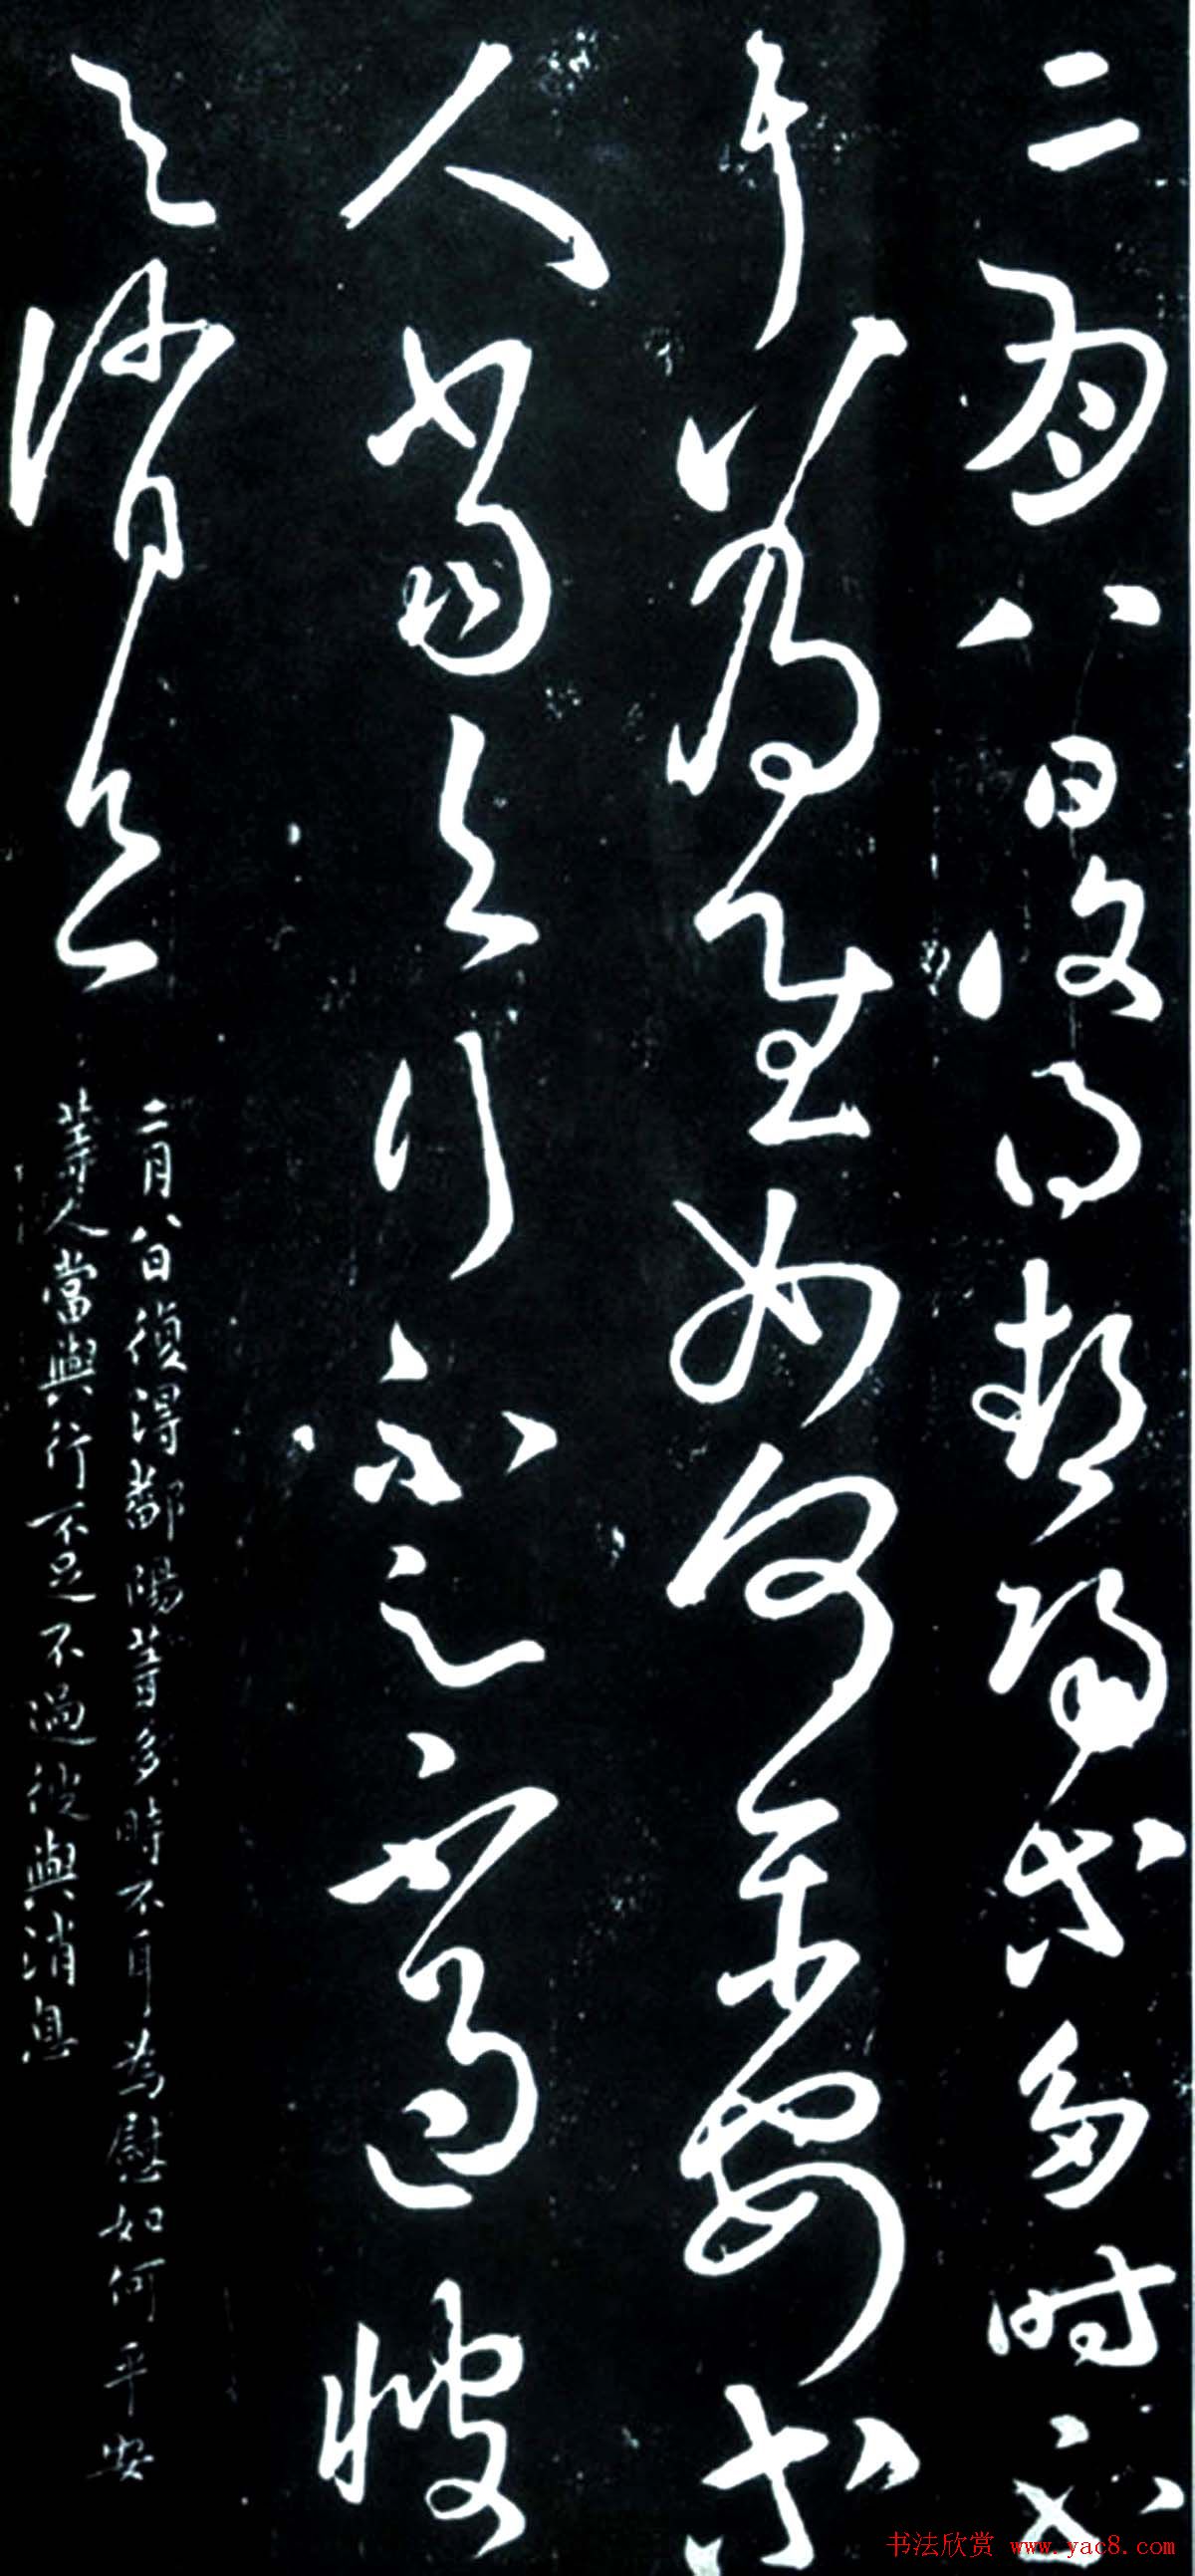 二月八日復得鄱陽等多時不
耳為慰如何平安等
人當與行不足不過彼
與消息
二月八日復得鄱陽等多時不耳為慰如何平安
等人當與行不足不過彼與消息
书法欣赏 www.yac8.com